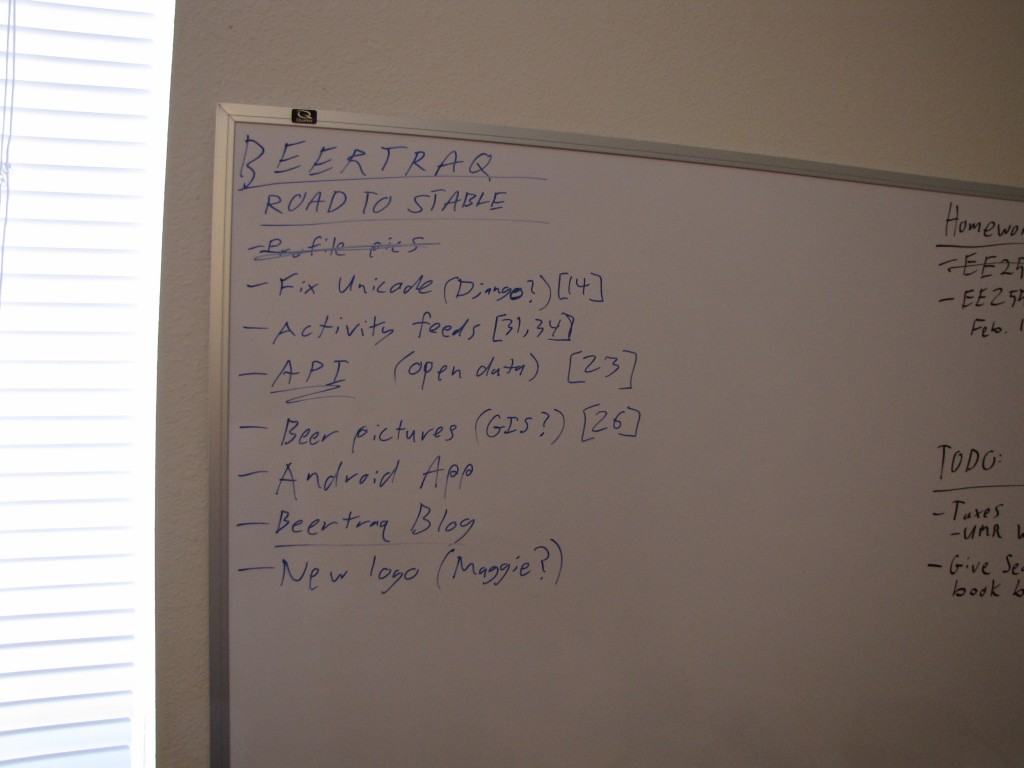 BEERTRAQ
ROAD TO STABLE
- Profile pics
- Fix Unicode (Django?) [14]
- Activity feeds [31,34]
- API (open data) [23]
- Beer pictures (GIS?) [26]
- Android App
- Beertraq Blog
- New logo (Maggie?)
Homewor
- EE25
- EE25
Feb. 1
TODO:
- Taxes
- UMR W
- Give Sea
book b